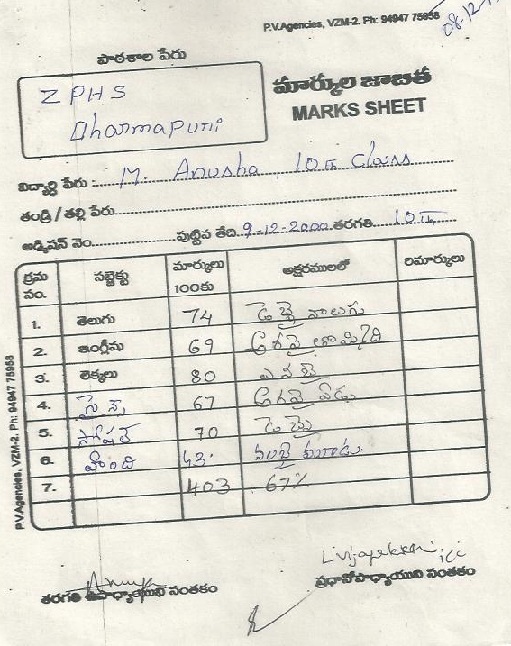 P.V.Agencies, VZM-2. Ph: 94947 75958
08-12-1
పాఠశాల పేరు
ZPHS
Dharmapuri
మార్కుల జాబితా
MARKS SHEET
విద్యార్థి పేరు : M. Anusha 10th Class
తండ్రి / తల్లి పేరు
అడ్మిషన్ నెం. పుట్టిన తేది 9-12-2000 తరగతి 10th
క్రమ నెం. సబ్జెక్టు మార్కులు 100కు అక్షరములలో రిమార్కులు
1. తెలుగు 74 డెబ్బై నాలుగు
2. ఇంగ్లీషు 69 అరవై తొమ్మిది
3. లెక్కలు 80 ఎనభై
4. సైన్స్ 67 అరవై ఏడు
5. సోషల్ 70 డెబ్బై
6. హింది 43
7. 403 67%
P.V.Agencies, VZM-2. Ph: 94947 75958
తరగతి ఉపాధ్యాయుని సంతకం
ప్రధానోపాధ్యాయుని సంతకం